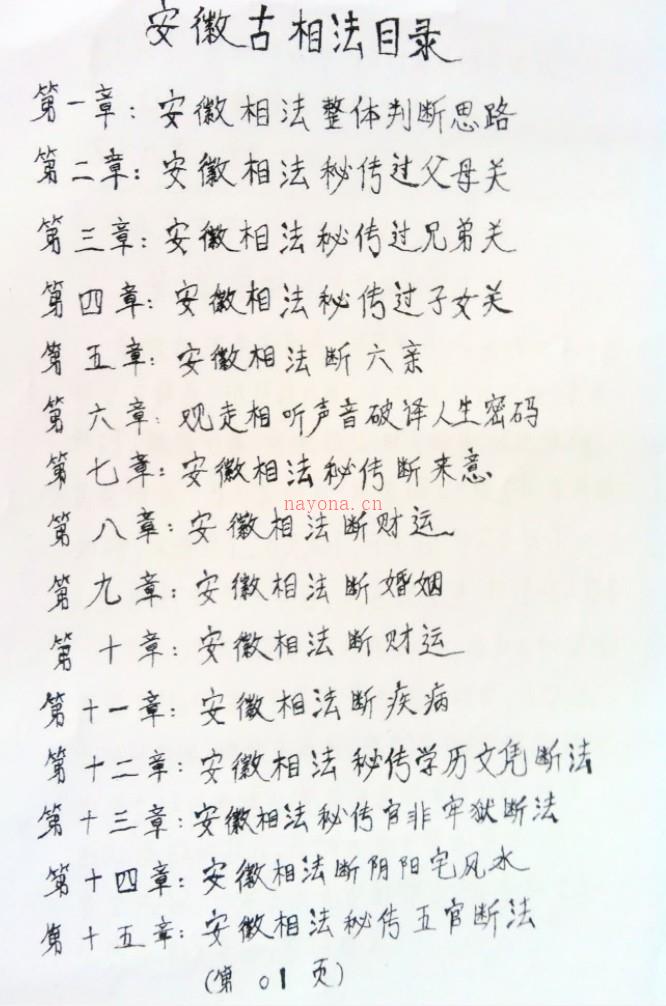 安徽古相法目录
第一章：安徽相法整体判断思路
第二章：安徽相法秘传过父母关
第三章：安徽相法秘传过兄弟关
第四章：安徽相法秘传过子女关
第五章：安徽相法断六亲
第六章：观走相听声音破译人生密码
第七章：安徽相法秘传断来意
nayona.cn
第八章：安徽相法断财运
第九章：安徽相法断婚姻
第十章：安徽相法断财运
第十一章：安徽相法断疾病
第十二章：安徽相法秘传学历文凭断法
第十三章：安徽相法秘传官非牢狱断法
第十四章：安徽相法断阴阳宅风水
第十五章：安徽相法秘传五官断法
(第01页)